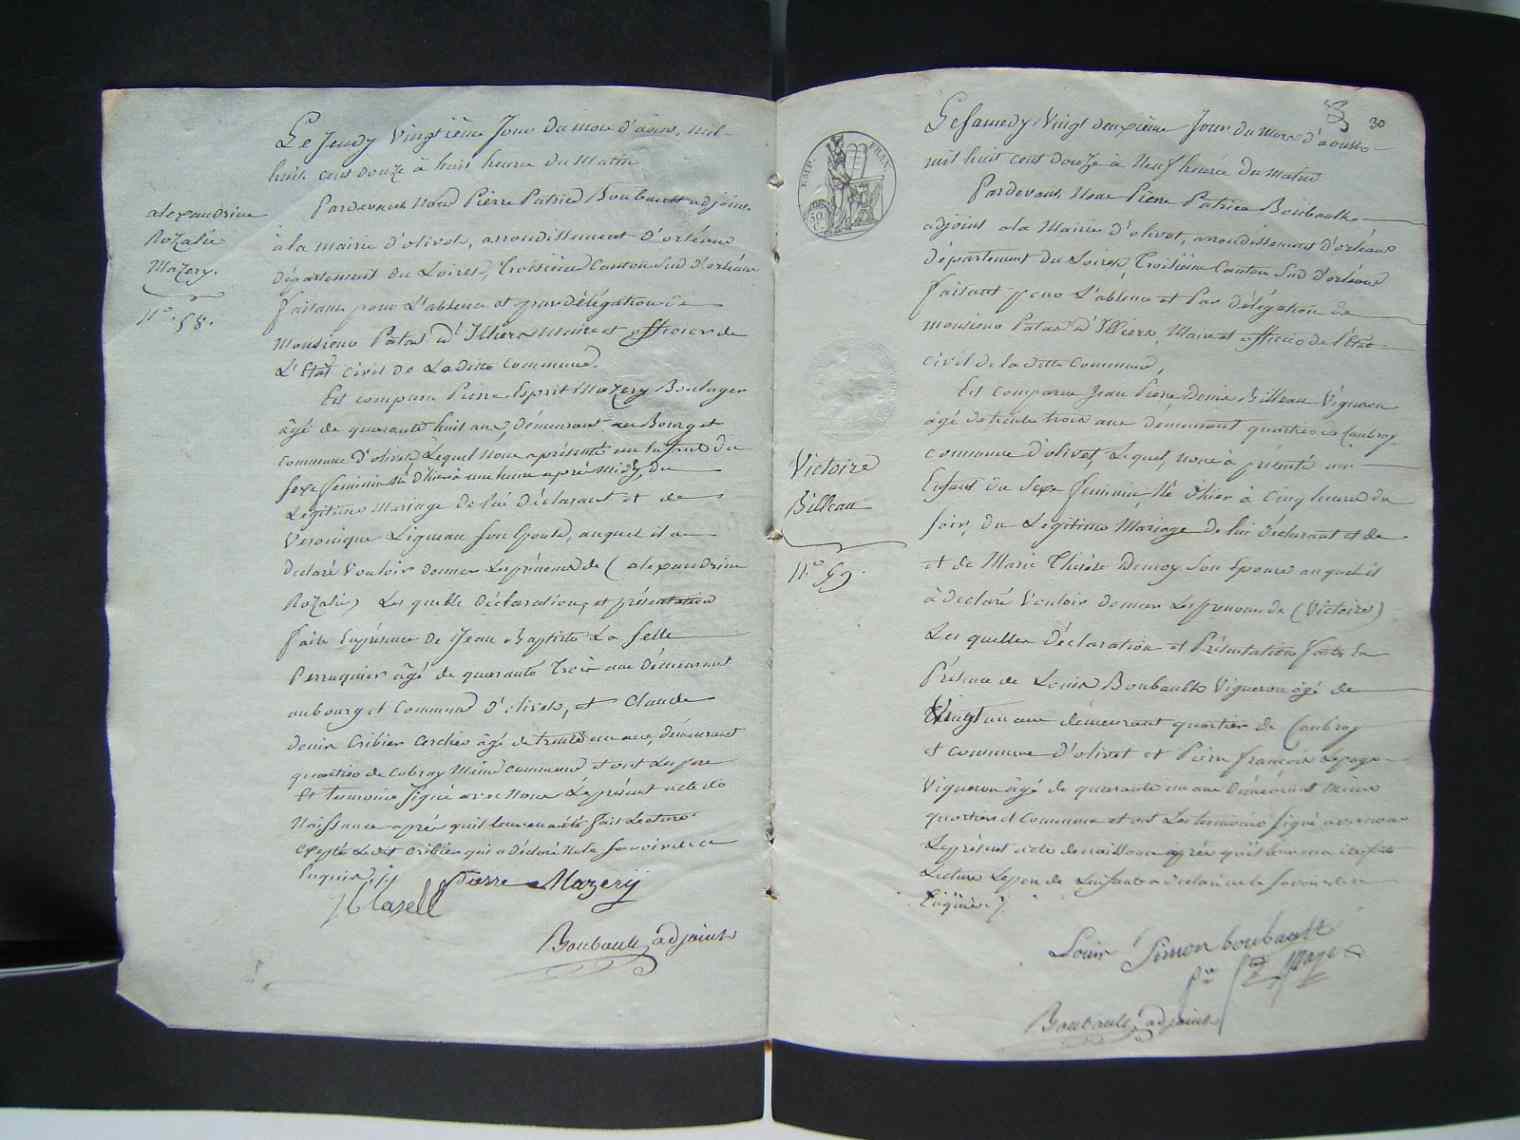 alexandrine
Rozalie
Mazery.
N.º 58.
Le Jeudy Vingtième Jour du mois d'aoust, mil-
huit cent douze à huit heures du Matin
Pardevant Nous Pierre Patrice Boubault adjoint
à la mairie d'olivet, arrondissement d'orléans
département du Loiret, troisième Canton Sud d'orléans
faisant pour L'absence et par délégation de
Monsieur Patas d'Illiers Maire et officier de
L'Etat civil de Laditte Commune.
Est comparu Pierre Esprit Mazery Boulanger
âgé de quarante huit ans, demeurant au Bourg et
commune d'olivet, Lequel Nous a présenté un Enfant du
sexe feminin né d'hier à une heure après midy, du
Légitime Mariage de lui déclarant et de
Veronique Ligneau son Epouse, auquel il a
declaré Vouloir donner Les prénoms de (alexandrine
Rozalie) Les quelles déclaration, et présentation
faite En présence de Jean Baptiste La selle
Perruquier âgé de quarante trois ans demeurant
au bourg et Commune d'olivet, et Claude
Denis Cribier cerclier âgé de trente un ans, demeurant
quartier de Cobray Même commune et ont Les pere
Et temoins signé avec Nous Le présent acte de
Naissance après qu'il leur en a été fait Lecture
excepté Ledit Cribier qui a déclaré Ne le savoir de ce
Enquis
JB lasell Pierre Mazery
Boubault adjoint
30
EMP. FRAN.
50
C.
Victoire
Billeau
N.º 59.
Le samedy Vingt deuxième Jour du Mois d'aoust
mil huit cent douze à Neuf heures du Matin
Pardevant Nous Pierre Patrice Boubault
adjoint a la Mairie d'olivet, arrondissement d'orléans
département du Loiret, Troisième Canton Sud d'orléans
faisant pour L'absence et Par délégation de
monsieur Patas d'Illiers, Maire et officier de l'Etat
civil de la ditte Commune,
Est comparu Jean Pierre Denis Billeau Vigneron
âgé de trente trois ans demeurant quartier de Caubray
commune d'olivet, Lequel, nous a présenté un
Enfant du Sexe feminin Né d'hier à cinq heures du
soir, du Légitime Mariage de lui déclarant et de
et de Marie Thérèse Son Epouse auquel il
à declaré Vouloir donner Les prenoms de (Victoire)
Les quelles déclaration et Présentation faite En
Présence de Louis Boubault Vigneron âgé de
Vingt un ans demeurant quartier de Caubray
et commune d'olivet et Pierre françois Lepage
Vigneron âgé de quarante un ans Demeurant même
quartier et Commune et ont Les temoins signé avec nous
Le présent acte de naissance après qu'il leur en a été fait
Lecture Le pere de L'enfant a declaré ne le savoir de ce
Enquis.
Louis Simon boubault
Boubault adjoint